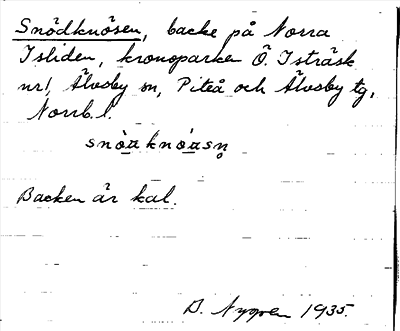 Snödknösen, backe på Norra
Isliden, kronoparken Ö. Isträsk
nr 1, Älvsby sn, Piteå och Älvsby tg,
Norrb. l.
snòa knòasn̥
Backen är kal.
D. Nygren 1935.